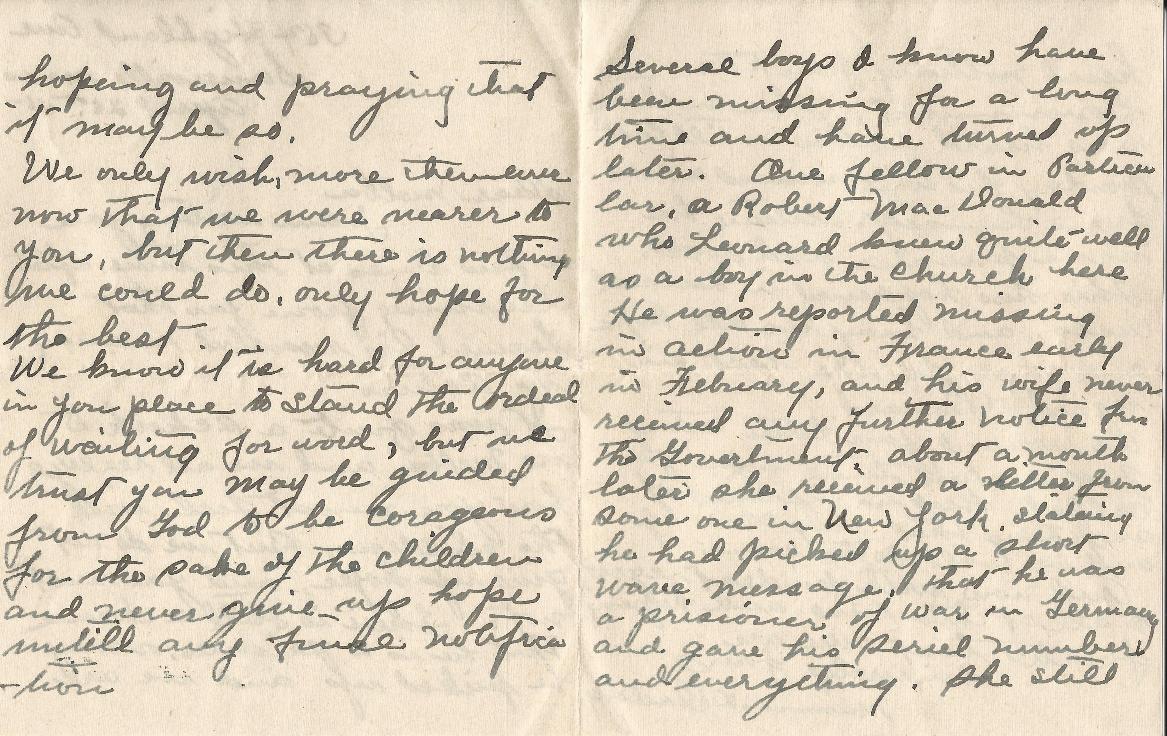 hoping and praying that
it may be so.
We only wish, more then ever
now that we were nearer to
you, but then there is nothing
we could do, only hope for
the best.
We know it is hard for anyone
in you place to stand the ordeal
of waiting for word, but we
trust you may be guided
from God to be corageous
for the sake of the children
and never give up hope
untill any final notifica
-tion
Several boys I know have
been missing for a long
time and have turned up
later. One fellow in Particu
lar, a Robert Mac Donald
who Leonard knew quite well
as a boy in the Church here
He was reported missing
in action in France early
in February, and his wife never
received any further notice from
the Government, about a month
later she received a letter from
some one in New York, stateing
he had picked up a short
wave message, that he was
a prisioner of war in Germany
and gave his seriel number
and everything. She still